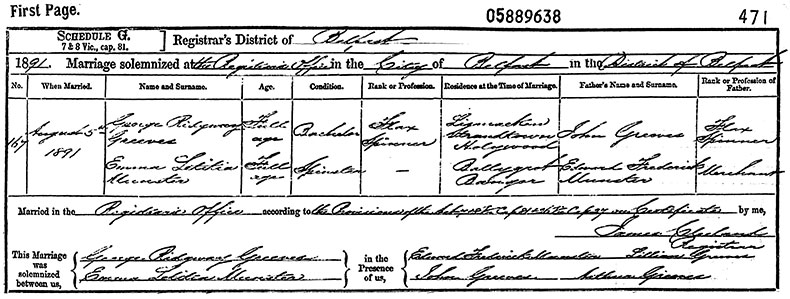 First Page. 05889638 471
SCHEDULE G.
7 & 8 Vic., cap. 81.
Registrar's District of Belfast
1891. Marriage solemnized at the Registrar's Office in the City of Belfast in the District of Belfast
No. When Married. Name and Surname. Age. Condition. Rank or Profession. Residence at the Time of Marriage. Father's Name and Surname. Rank or Profession of Father.
167 August 5th 1891 George Ridgway Greeves Full age Bachelor Flax Spinner Strandtown Holywood John Greeves Flax Spinner
Emma Letitia Munster Full age Spinster — Ballygrot Bangor Edward Frederick Munster Merchant
Married in the Registrar's Office according to the Provisions of the Certificate by me,
James Registrar
This Marriage was solemnized between us,
George Ridgway Greeves
Emma Letitia Munster
in the Presence of us,
Edward Frederick Munster Lillian Greeves
John Greeves Greeves